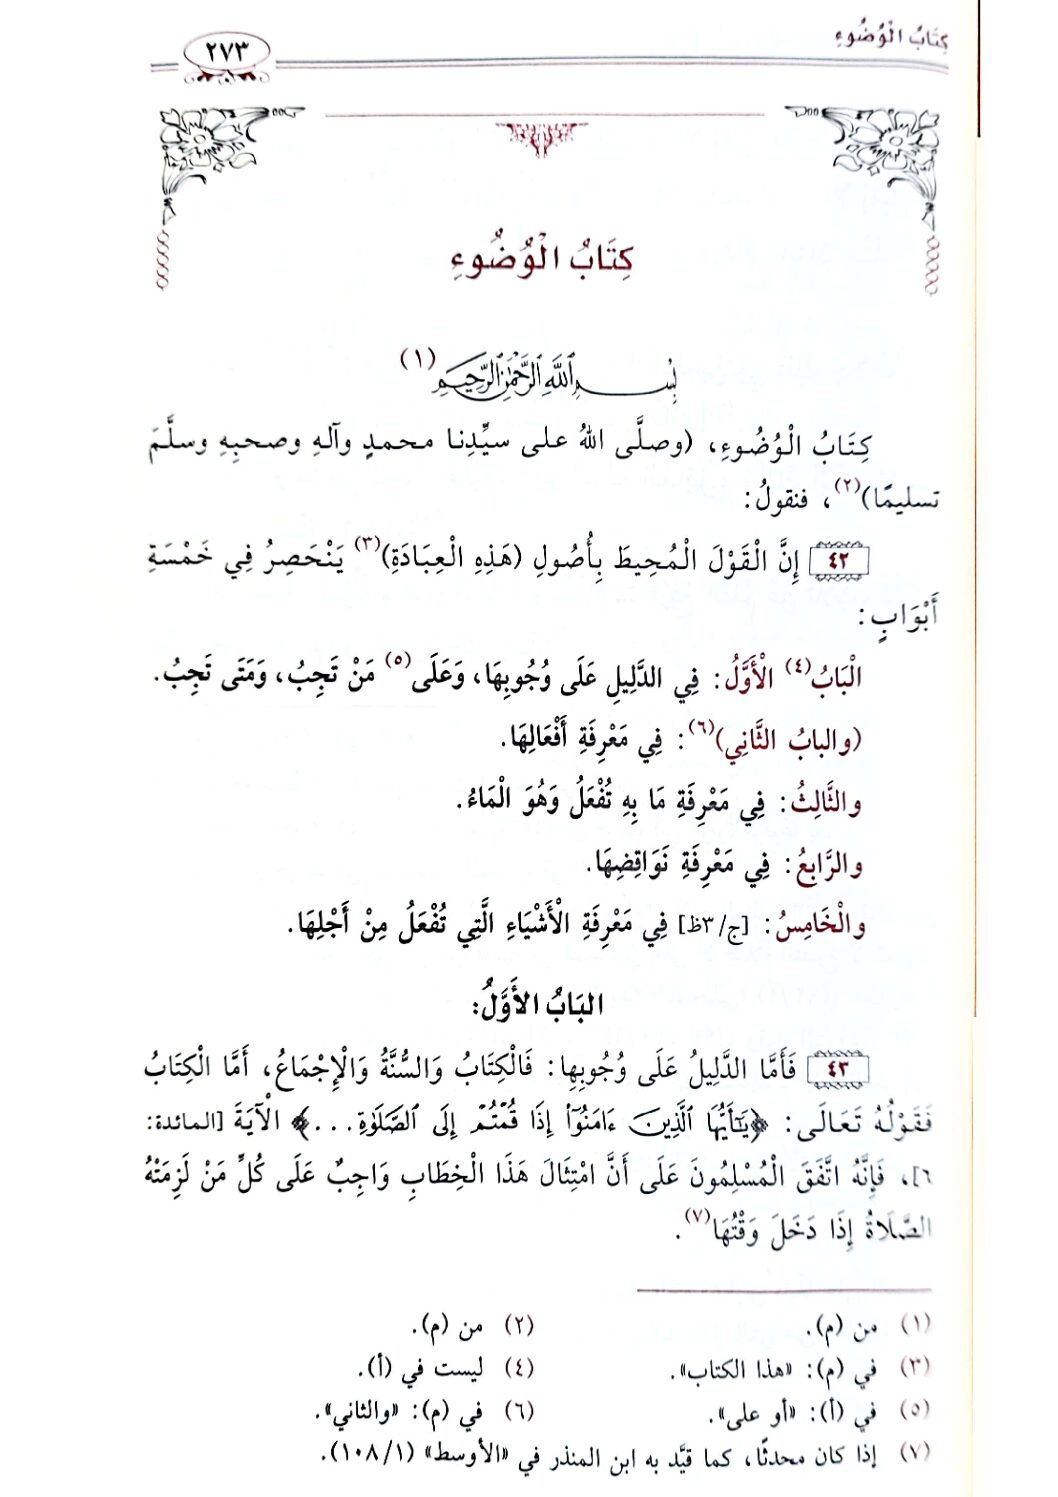 كِتَابُ الْوُضُوءِ
٢٧٣
كِتَابُ الْوُضُوءِ
بِسْمِ ٱللَّهِ ٱلرَّحْمَٰنِ ٱلرَّحِيمِ (١)
كِتَابُ الْوُضُوءِ، (وصلَّى اللهُ على سيِّدِنا محمدٍ وآلهِ وصحبِهِ وسلَّمَ
تسليمًا)(٢)، فنقولُ:
٤٢ إِنَّ الْقَوْلَ الْمُحِيطَ بِأُصُولِ (هَذِهِ الْعِبَادَةِ)(٣) يَنْحَصِرُ فِي خَمْسَةِ
أَبْوَابٍ:
الْبَابُ(٤) الْأَوَّلُ: فِي الدَّلِيلِ عَلَى وُجُوبِهَا، وَعَلَى(٥) مَنْ تَجِبُ، وَمَتَى تَجِبُ.
(والبابُ الثَّانِي)(٦): فِي مَعْرِفَةِ أَفْعَالِهَا.
والثَّالِثُ: فِي مَعْرِفَةِ مَا بِهِ تُفْعَلُ وَهُوَ الْمَاءُ.
والرَّابِعُ: فِي مَعْرِفَةِ نَوَاقِضِهَا.
والْخَامِسُ: [ج/٣ظ] فِي مَعْرِفَةِ الْأَشْيَاءِ الَّتِي تُفْعَلُ مِنْ أَجْلِهَا.
البَابُ الأَوَّلُ:
٤٣ فَأَمَّا الدَّلِيلُ عَلَى وُجُوبِها: فَالْكِتَابُ وَالسُّنَّةُ وَالْإِجْمَاعُ، أَمَّا الْكِتَابُ
فَقَوْلُهُ تَعَالَى: ﴿يَٰٓأَيُّهَا ٱلَّذِينَ ءَامَنُوٓا۟ إِذَا قُمْتُمْ إِلَى ٱلصَّلَوٰةِ...﴾ الْآيَةَ [المائدة:
٦]، فَإِنَّهُ اتَّفَقَ الْمُسْلِمُونَ عَلَى أَنَّ امْتِثَالَ هَذَا الْخِطَابِ وَاجِبٌ عَلَى كُلِّ مَنْ لَزِمَتْهُ
الصَّلَاةُ إِذَا دَخَلَ وَقْتُهَا(٧).
(١) من (م).
(٢) من (م).
(٣) في (م): «هذا الكتاب».
(٤) ليست في (أ).
(٥) في (أ): «أو على».
(٦) في (م): «والثاني».
(٧) إذا كان محدثًا، كما قيَّد به ابن المنذر في «الأوسط» (١٠٨/١).